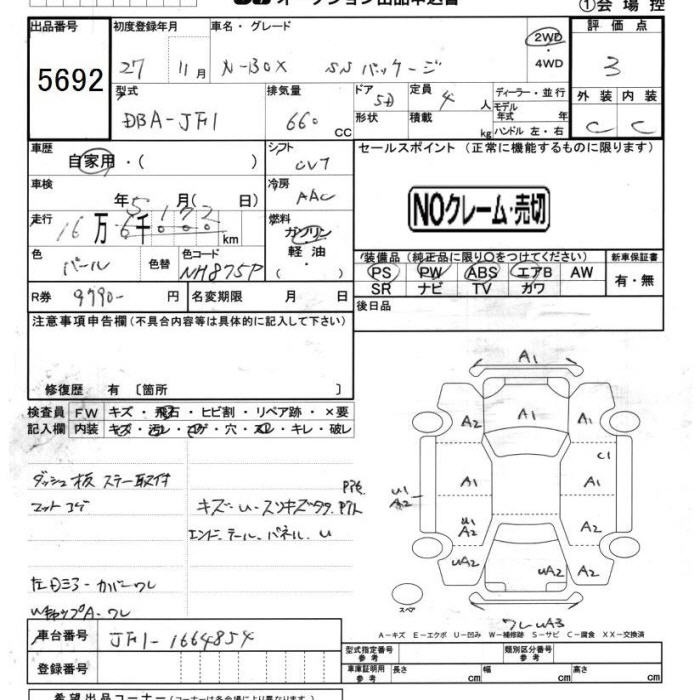 オークション出品申込書
①会場控
出品番号 初度登録年月 車名・グレード 評価点
5692 27 11月 N-BOX SSパッケージ 2WD・4WD 3
型式 排気量 ドア 定員 ディーラー・並行
外装 内装
DBA-JF1 660 CC 5D 4人
形状 積載 kg モデル年式 年
ハンドル 左・右
C C
車歴 シフト セールスポイント(正常に機能するものに限ります)
自家用・( ) CVT
車検 冷房
年 月( 日) AAC
NOクレーム・売切
走行 燃料
16万 5172 km ガソリン
軽油
・( )
装備品(純正品に限り○をつけてください) 新車保証書
色 色替 色コード
パール NH875P
PS PW ABS エアB AW 有・無
SR ナビ TV カワ
R券 9790- 円 名変期限 月 日 後日品
注意事項申告欄(不具合内容等は具体的に記入して下さい)
修復歴 有 〔箇所 〕
検査員 FW キズ・飛石・ヒビ割・リペア跡・×要
記入欄 内装 キズ・汚レ・コゲ・穴・スレ・キレ・破レ
ダッシュ板 ステー取付
マット コゲ
キズ・U・スリキズ
エンド、テール、パネル、U
左Dミラーカバーワレ
ワレ
A1
A2 A1 A1
C1
U1
A2 A1 A1
U1
A2 A2
UA2 UA2
スペア
ワレ UA3
A-キズ E-エクボ U-凹み W-補修跡 S-サビ C-腐食 XX-交換済
車台番号 JF1-1664854
登録番号
型式指定番号 参考 類別区分番号 参考
車庫証明用 参考 長さ cm 幅 cm 高さ cm
希望出品コーナー(コーナーは各会場により異なります)